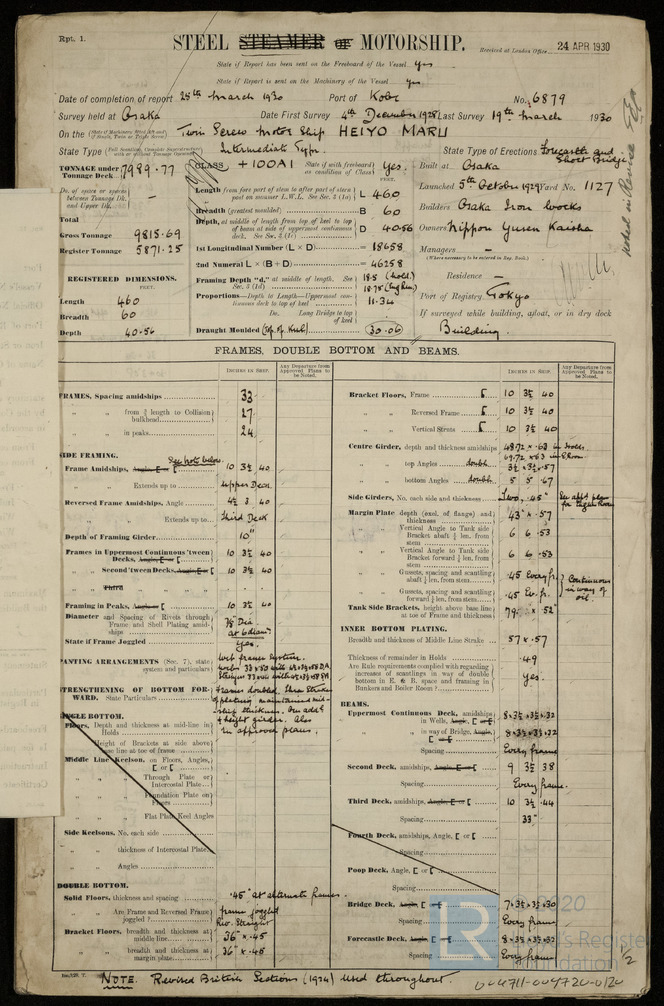 Rpt. 1.
STEEL STEAMER OR MOTORSHIP.
Received at London Office 24 APR 1930
State if Report has been sent on the Freeboard of the Vessel yes
State if Report is sent on the Machinery of the Vessel yes
Date of completion of report 25th March 1930 Port of Kobe No. 6879
Survey held at Osaka Date First Survey 4th December 1928 Last Survey 19th March 1930
On the Twin Screw Motor Ship HEIYO MARU
State Type Intermediate Type. State Type of Erections Forecastle and Short Bridge
TONNAGE under Tonnage Deck 7989.77
CLASS +100A1 State if with freeboard as condition of Class Yes.
Built at Osaka
Launched 5th October 1929 Yard No. 1127
Builders Osaka Iron Works
Owners Nippon Yusen Kaisha
Managers —
(Where necessary to be entered in Reg. Book.)
Residence —
Port of Registry Tokyo
If surveyed while building, afloat, or in dry dock
Building.
Total
Gross Tonnage 9815.69
Register Tonnage 5871.25
REGISTERED DIMENSIONS.
FEET.
Length 460
Breadth 60
Depth 40.56
Length from fore part of stem to after part of stern post on summer L.W.L. See Sec. 3 (1a) L 460
Breadth (greatest moulded) B 60
Depth, at middle of length from top of keel to top of beam at side of uppermost continuous deck. See Sec. 3 (1c) D 40.56
1st Longitudinal Number (L × D) = 18658
2nd Numeral L × (B + D) = 46258
Framing Depth "d," at middle of length. See Sec. 3 (1d) 18.5 (hold)
Proportions—Depth to Length—Uppermost continuous deck to top of keel 11.34
Do. Long Bridge to top of keel
Draught Moulded 30.06
FRAMES, DOUBLE BOTTOM AND BEAMS.
INCHES IN SHIP.
Any Departure from Approved Plans to be Noted.
FRAMES, Spacing amidships 33
" " from ⅗ length to Collision bulkhead 27
" " in peaks 24
SIDE FRAMING.
See note below
Frame Amidships, Angle, E or [ 10 3½ 40
" " Extends up to Upper Deck
Reversed Frame Amidships, Angle 4½ 3 40
" " Extends up to Third Deck
Depth of Framing Girder 10"
Frames in Uppermost Continuous 'tween Decks, Angle, E or [ 10 3½ 40
" Second 'tween Decks, Angle, E or [ 10 3½ 40
" Third " "
Framing in Peaks, Angle or [ 10 3½ 40
Diameter and Spacing of Rivets through Frame and Shell Plating amidships ⅞ Dia at 6 diam
State if Frame Joggled Yes.
PANTING ARRANGEMENTS (Sec. 7), state system and particulars Web frames system.
STRENGTHENING OF BOTTOM FORWARD. State Particulars Frames doubled. Three strakes of plating maintained midship thickness. & height girder. Also in approved plans.
SINGLE BOTTOM.
Floors, Depth and thickness at mid-line in Holds
Height of Brackets at side above base line at toe of frame
Middle Line Keelson, on Floors, Angles, E or [
" " Through Plate or Intercostal Plate
" " Foundation Plate on Floors
" " Flat Plate Keel Angles
Side Keelsons, No. each side
" " thickness of Intercostal Plate
" " Angles
DOUBLE BOTTOM.
Solid Floors, thickness and spacing .45" at alternate frames.
" " Are Frame and Reversed Frame joggled? Frame joggled Rev. Straight
Bracket Floors, breadth and thickness at middle line 36" × .45
" " breadth and thickness at margin plate 36" × .45
Bracket Floors, Frame [ 10 3½ 40
" " Reversed Frame [ 10 3½ 40
" " Vertical Struts [ 10 3½ 40
Centre Girder, depth and thickness amidships 48.72 × .63 in Holds
" " top Angles double 3½ × 3½ × .57
" " bottom Angles double 5 5 .67
Side Girders, No. each side and thickness Two, .45"
Margin Plate depth (excl. of flange) and thickness 43" × .57
" " Vertical Angle to Tank side Bracket abaft ¼ len. from stem 6 6 .53
" " Vertical Angle to Tank side Bracket forward ¼ len. from stem 6 6 .53
" " Gussets, spacing and scantling abaft ¼ len. from stem .45 Every fr.
" " Gussets, spacing and scantling forward ¼ len. from stem .45 Ev. fr.
Continuous in way of oil.
Tank Side Brackets, height above base line at toe of Frame and thickness 79 × 52"
INNER BOTTOM PLATING.
Breadth and thickness of Middle Line Strake 57 × .57
Thickness of remainder in Holds .49
Are Rule requirements complied with regarding increase of scantlings in way of double bottom in E. & B. space and framing in Bunkers and Boiler Room? yes.
BEAMS.
Uppermost Continuous Deck, amidships in Wells, Angle, E or [ 8×3½×3½×32
" " in way of Bridge, Angle, E or [ 8×3½×3½×32
Spacing Every frame
Second Deck, amidships, Angle, E or [ 9 3½ 38
Spacing Every frame.
Third Deck, amidships, Angle, E or [ 10 3½ .44
Spacing 33"
Fourth Deck, amidships, Angle, E or [
Spacing
Poop Deck, Angle, E or [
Spacing
Bridge Deck, Angle, E or [ 7×3½×3½×30
Spacing Every frame
Forecastle Deck, Angle, E or [ 8×3½×3½×32
Spacing Every frame
NOTE. Revised British Sections (1924) used throughout.
004711-004720-0120
1/2
LR
© 2020
Lloyd's Register
Foundation